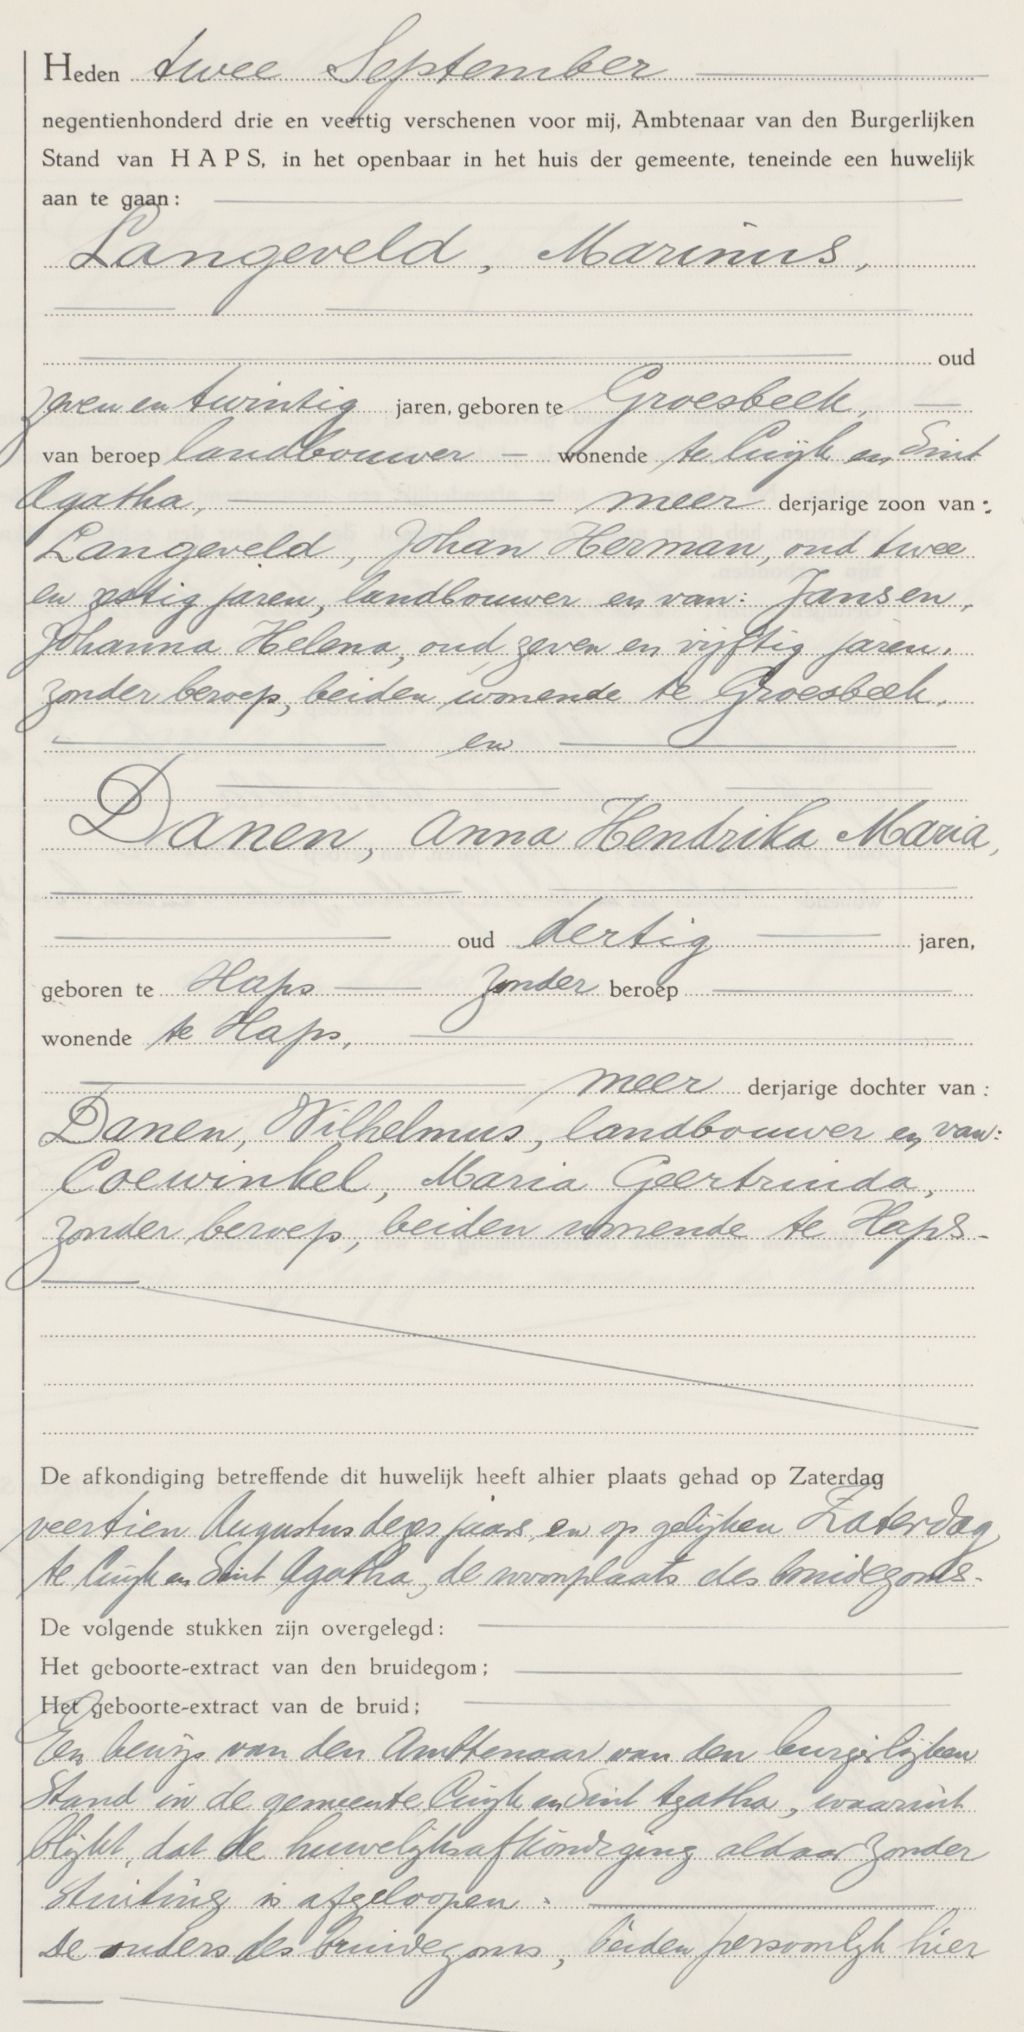 Heden twee September
negentienhonderd drie en veertig verschenen voor mij, Ambtenaar van den Burgerlijken
Stand van HAPS, in het openbaar in het huis der gemeente, teneinde een huwelijk
aan te gaan:
Langeveld, Marinus,
oud
zeven en twintig jaren, geboren te Groesbeek,
van beroep landbouwer wonende te Cuijk en Sint
Agatha, meer derjarige zoon van:
Langeveld, Johan Herman, oud twee
en zestig jaren, landbouwer en van: Jansen,
Johanna Helena, oud zeven en vijftig jaren,
zonder beroep, beiden wonende te Groesbeek.
en
Danen, Anna Hendrika Maria,
oud dertig jaren,
geboren te Haps zonder beroep
wonende te Haps,
meer derjarige dochter van:
Danen, Wilhelmus, landbouwer en van:
Coewinkel, Maria Geertruida,
zonder beroep, beiden wonende te Haps.
De afkondiging betreffende dit huwelijk heeft alhier plaats gehad op Zaterdag
veertien Augustus dezes jaars en op gelijken Zaterdag
te Cuijk en Sint Agatha, de woonplaats des bruidegoms.
De volgende stukken zijn overgelegd:
Het geboorte-extract van den bruidegom;
Het geboorte-extract van de bruid;
Een bewijs van den Ambtenaar van den burgerlijken
Stand in de gemeente Cuijk en Sint Agatha, waaruit
blijkt, dat de huwelijksafkondiging aldaar zonder
stuiting is afgeloopen.
De ouders des bruidegoms, beiden persoonlijk hier